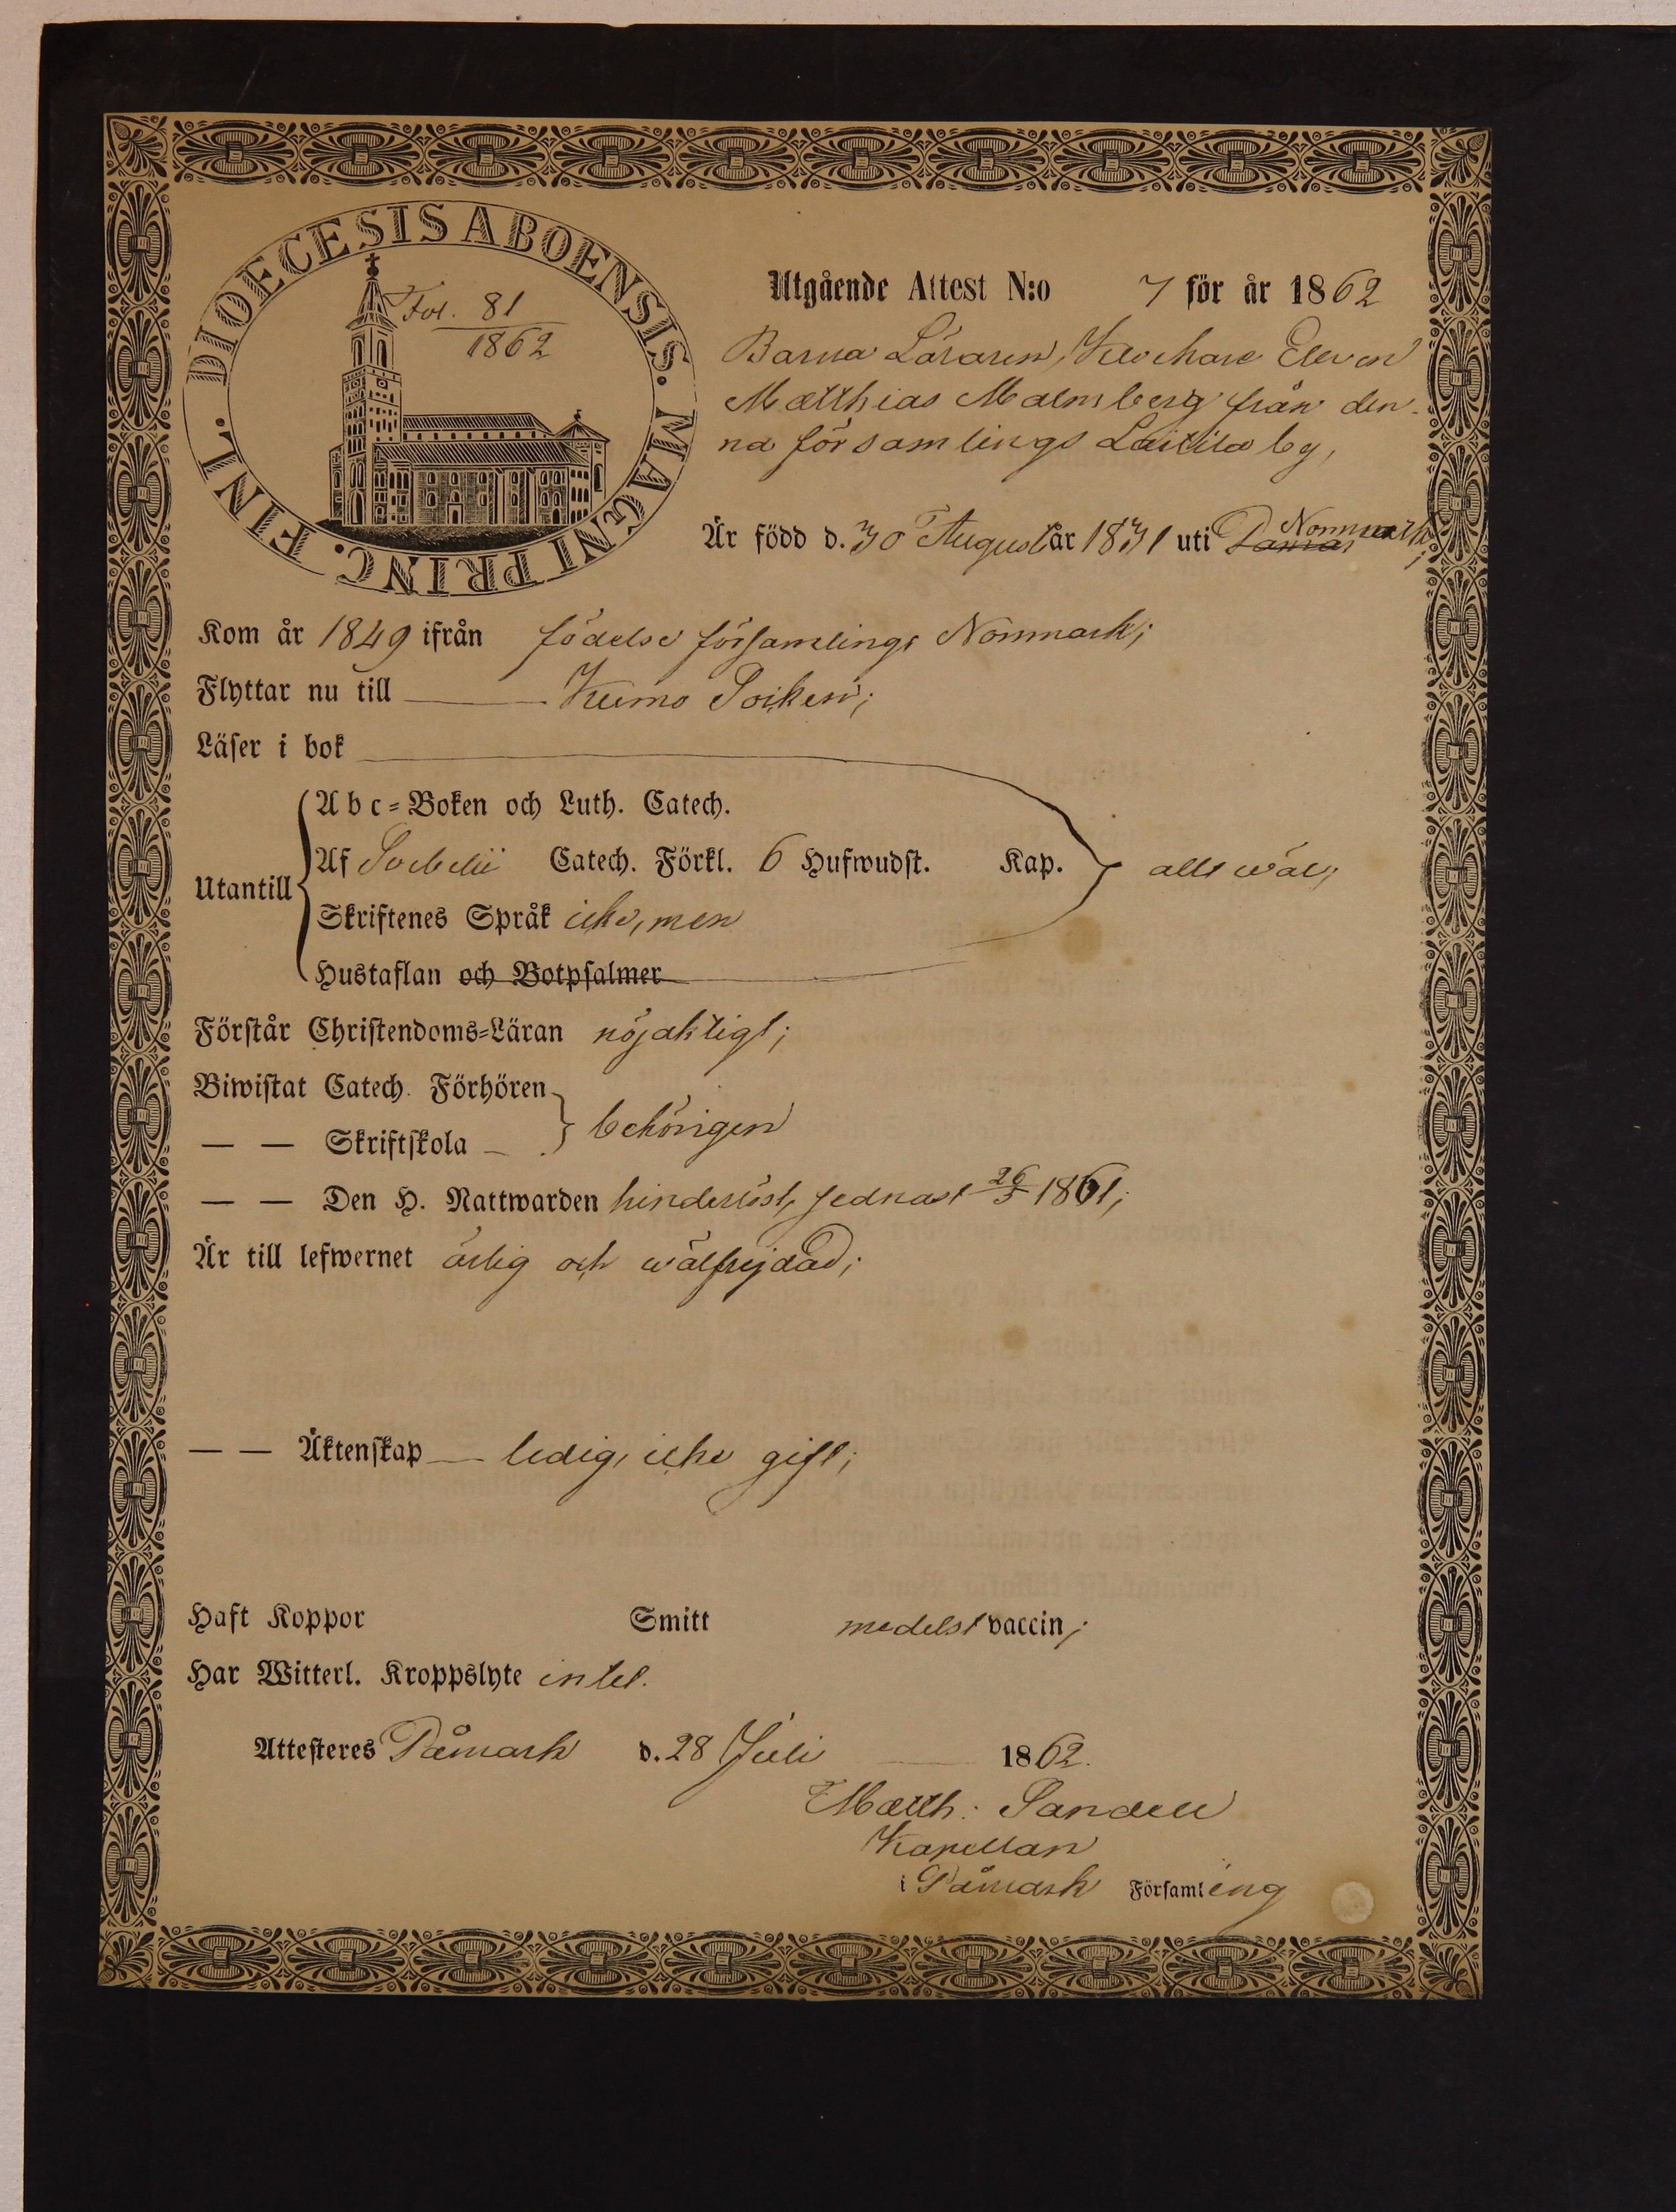 DIOECESIS ABOENSIS. MAGNI PRINC. FINL.
Fol. 81
1862
Utgående Attest N:o 7 för år 1862
Barna Läraren, Klockare Eleven
Matthias Malmberg från den-
na församlings Laitila by,
Är född d. 30 August år 1831 uti Påmark Norrmark;
Kom år 1849 ifrån födelse församlings Norrmark;
Flyttar nu till Kumo Socken;
Läser i bok
Utantill
Abc=Boken och Luth. Catech.
Af Svebelii Catech. Förkl. 6 Hufwudst. Kap. allt wäl;
Skriftenes Språk icke, men
Hustaflan och Botpsalmer
Förstår Christendoms=Läran nöjaktigt;
Biwistat Catech. Förhören
— — Skriftskola behörigen
— — Den H. Nattwarden hinderlöst, sednast 26/5 1861;
Är till lefwernet ärlig och wälfrejdad;
— — Äktenskap ledig, icke gift;
Haft Koppor Smitt medelst vaccin;
Har Witterl. Kroppslyte intet.
Attesteres Påmark d. 28 Juli 1862.
Matth: Sandell
Kapellan
i Påmark Församling